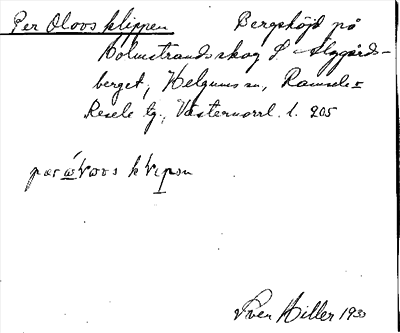 Per Oloos klippen Bergshöjd på
Holmstrandsskog S Älggårds-
berget, Helgums sn, Ramsele-
Resele tg., Västernorrl. l. 205
Sven Hiller 1930